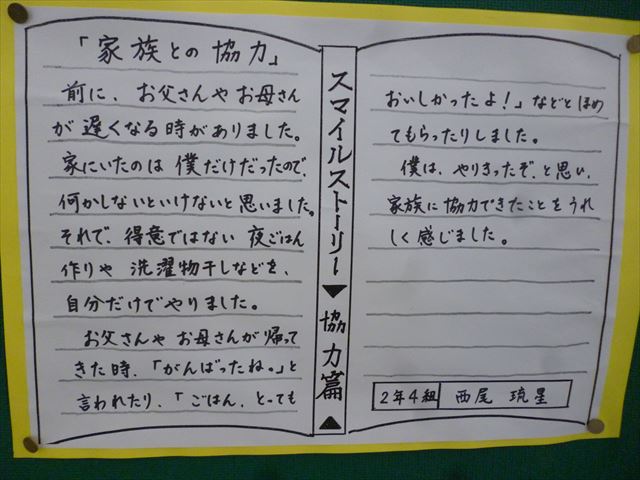 「家族との協力」
前に、お父さんやお母さん
が遅くなる時がありました。
家にいたのは僕だけだったので、
何かしないといけないと思いました。
それで、得意ではない夜ごはん
作りや洗濯物干しなどを、
自分だけでやりました。
お父さんやお母さんが帰って
きた時、「がんばったね。」と
言われたり、「ごはん、とっても
スマイルストーリー▼協力篇▲
おいしかったよ!」などとほめ
てもらったりしました。
僕は、やりきったぞ、と思い、
家族に協力できたことをうれ
しく感じました。
2年4組 西尾 琉星